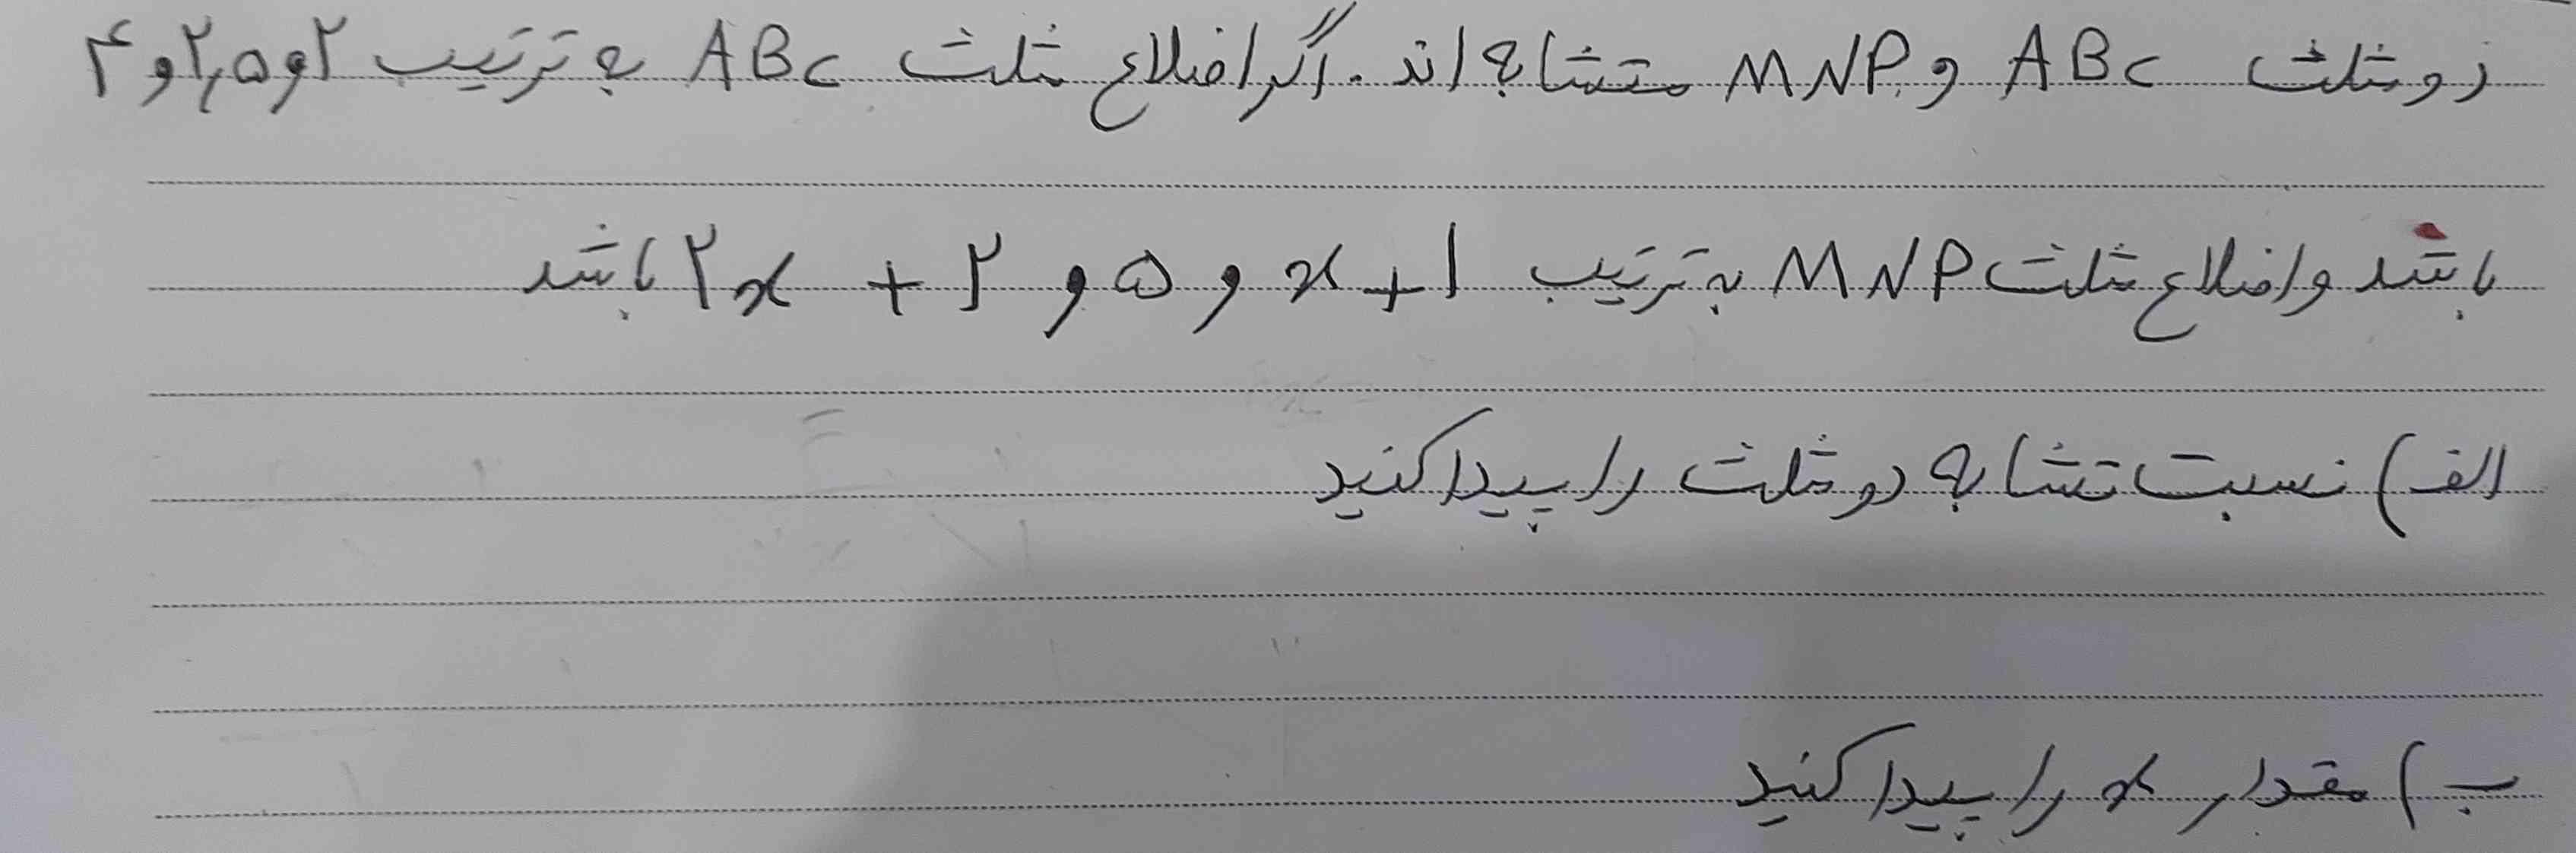 دو مثلث ABC و MNP متشابه اند. اگر اضلاع مثلث ABC به ترتیب ۲ و ۲,۵ و ۴
باشد و اضلاع مثلث MNP به ترتیب x+۱ و ۵ و ۲x + ۲ باشد
الف) نسبت تشابه دو مثلث را پیدا کنید
ب) مقدار x را پیدا کنید